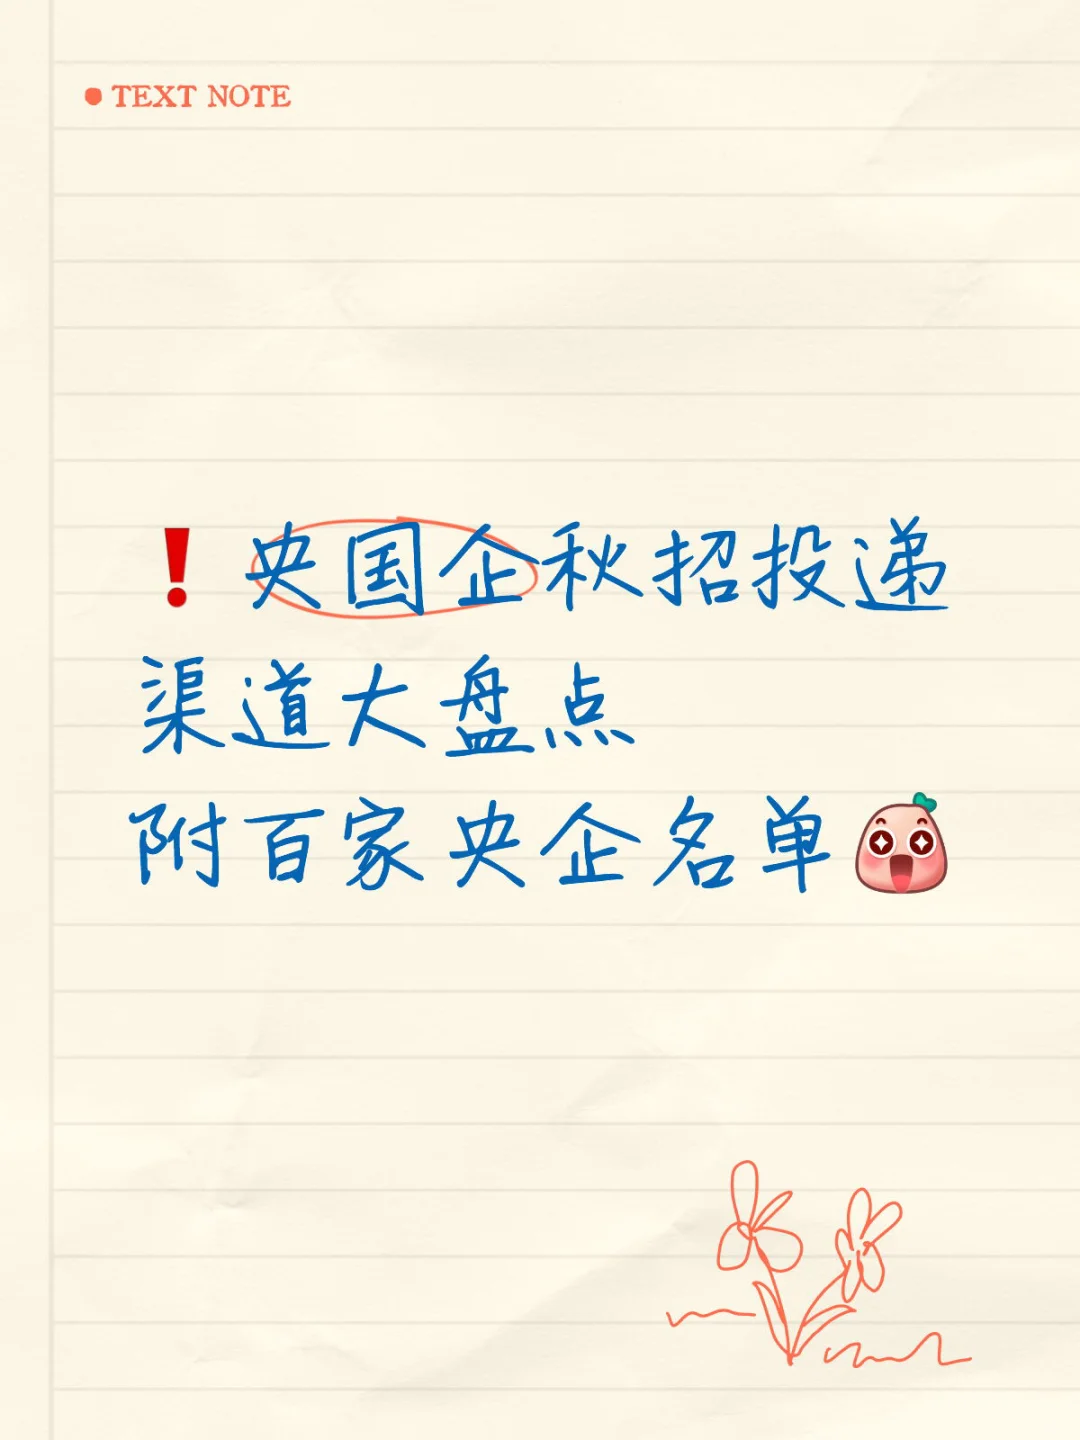 TEXT NOTE
❗央国企秋招投递
渠道大盘点
附百家央企名单